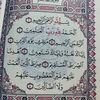 بِسْمِ ٱللَّهِ ٱلرَّحْمَٰنِ ٱلرَّحِيمِ
ٱلْحَمْدُ لِلَّهِ رَبِّ ٱلْعَٰلَمِينَ
ٱلرَّحْمَٰنِ ٱلرَّحِيمِ مَٰلِكِ يَوْمِ ٱلدِّينِ
إِيَّاكَ نَعْبُدُ وَإِيَّاكَ نَسْتَعِينُ
ٱهْدِنَا ٱلصِّرَٰطَ ٱلْمُسْتَقِيمَ
صِرَٰطَ ٱلَّذِينَ أَنْعَمْتَ
عَلَيْهِمْ غَيْرِ ٱلْمَغْضُوبِ عَلَيْهِمْ
وَلَا ٱلضَّآلِّينَ